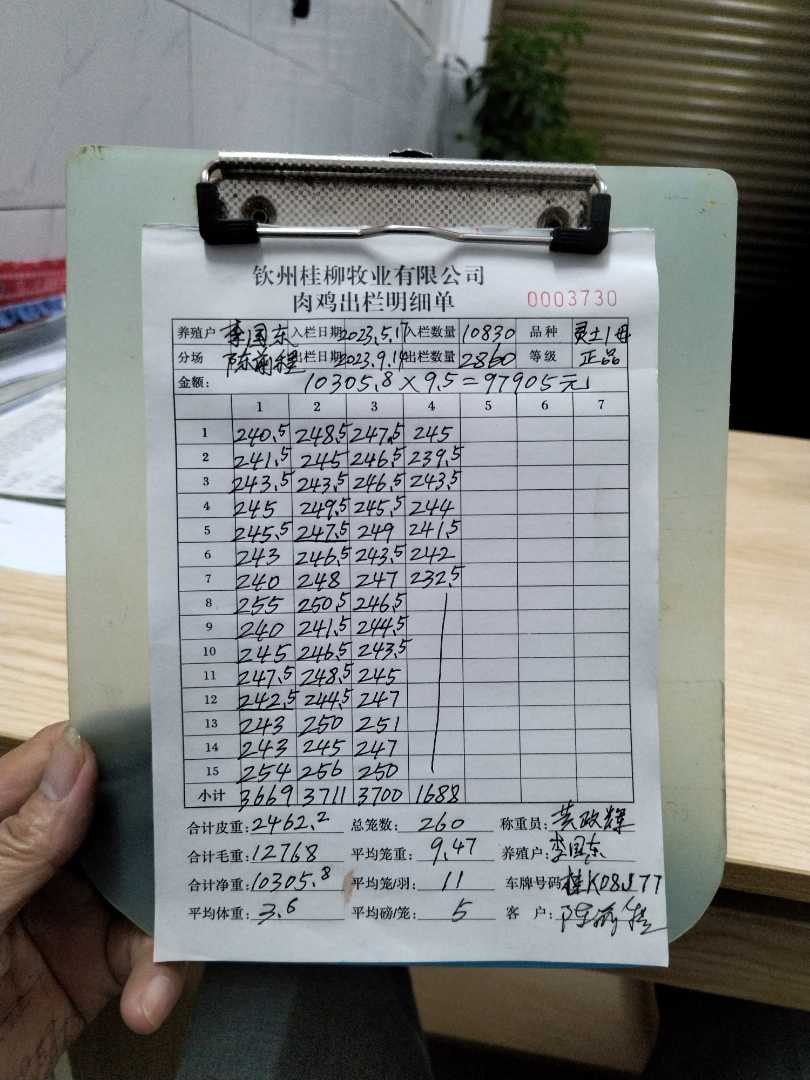 钦州桂柳牧业有限公司
肉鸡出栏明细单 0003730
养殖户 李国东 入栏日期 2023.5.17 入栏数量 10830 品种 灵土1母
分场 陈前程 出栏日期 2023.9.14 出栏数量 2860 等级 正品
金额: 10305.8×9.5=97905元
1 2 3 4 5 6 7
1 240.5 248.5 247.5 245
2 241.5 245 246.5 239.5
3 243.5 243.5 246.5 243.5
4 245 249.5 245.5 244
5 245.5 247.5 249 241.5
6 243 246.5 243.5 242
7 240 248 247 232.5
8 255 250.5 246.5
9 240 241.5 244.5
10 245 246.5 243.5
11 247.5 248.5 245
12 242.5 244.5 247
13 243 250 251
14 243 245 247
15 254 256 250
小计 3669 3711 3700 1688
合计皮重: 2462.2 总笼数: 260 称重员: 黄政辉
合计毛重: 12768 平均笼重: 9.47 养殖户: 李国东
合计净重: 10305.8 平均笼/羽: 11 车牌号码 桂K08J77
平均体重: 3.6 平均磅/笼: 5 客户: 陈前程